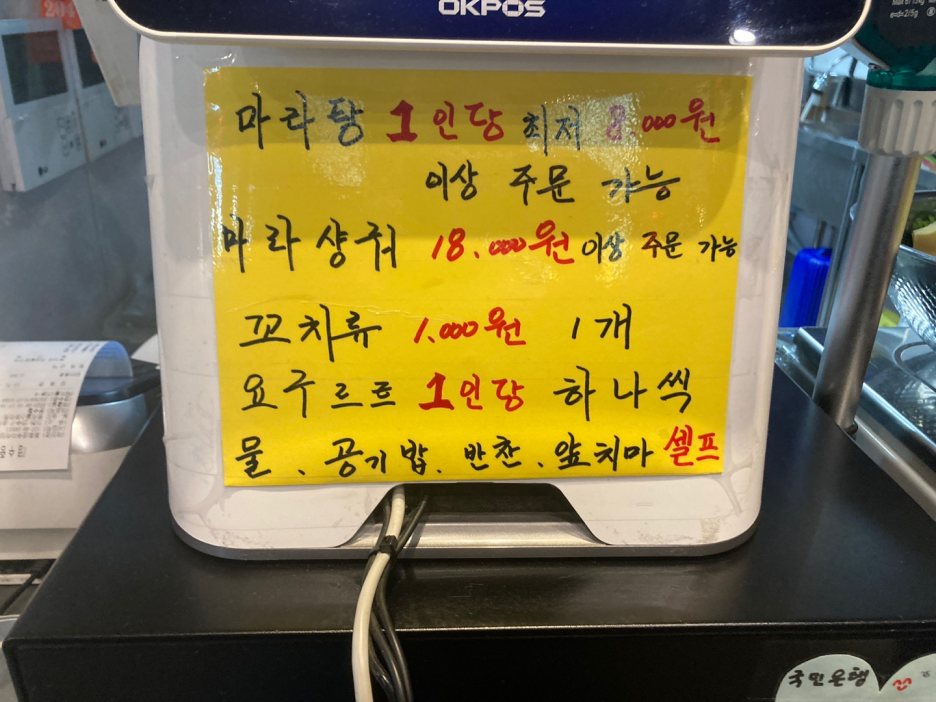 OKPOS
마라탕 1인당 최저 8.000원
이상 주문 가능
마라샹궈 18.000원 이상 주문 가능
꼬치류 1.000원 1개
요구르르 1인당 하나씩
물. 공기밥. 반찬. 앞치마 셀프
국민은행